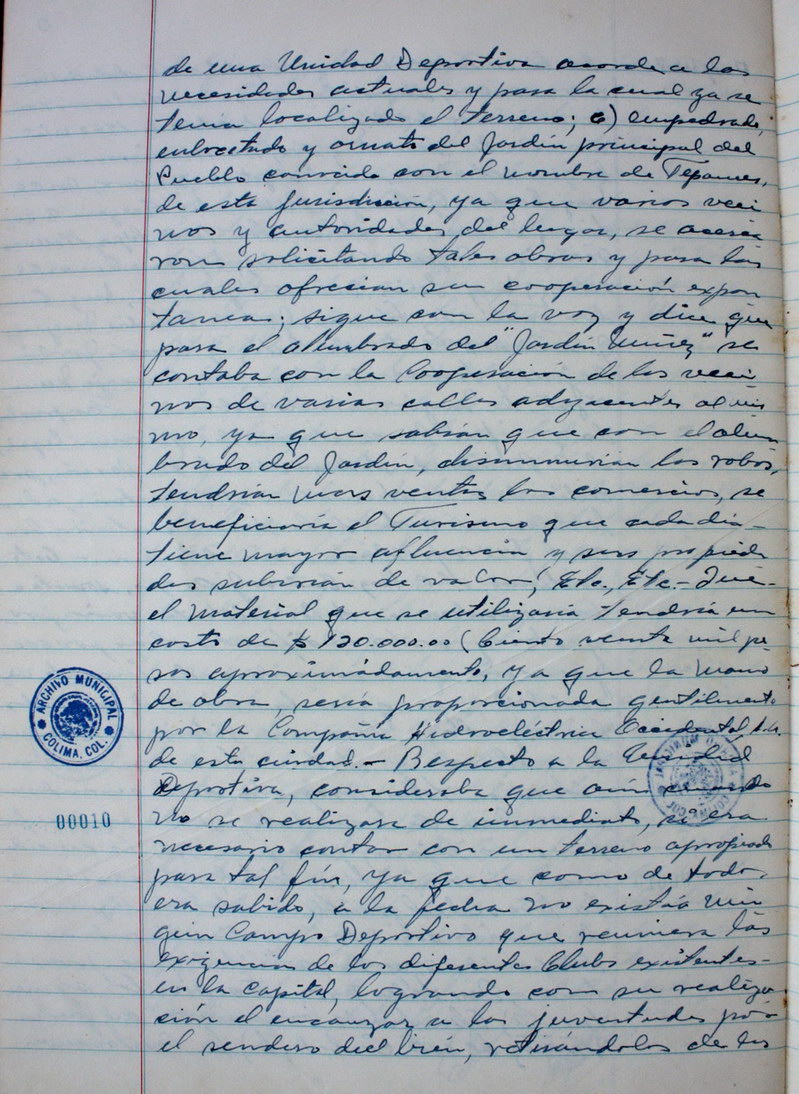 de una Unidad Deportiva acorde a las
necesidades actuales y para la cual ya se
tenia localizado el terreno; c) empedrado,
enbocetado y ornato del Jardín principal del
Pueblo conocido con el nombre de Tepames,
de esta jurisdicción, ya que varios veci
nos y autoridades del lugar, se acerca
ron solicitando tales obras y para las
cuales ofrecian su cooperación expon
tanea; sigue con la voz y dice que
para el alumbrado del "Jardín Núñez" se
contaba con la Cooperación de los veci
nos de varias calles adyacentes al mis
mo, ya que sabían que con el alum
brado del Jardín, disminuirian los robos,
tendrían mas ventas los comercios, se
beneficiaría el Turismo que cada dia-
tiene mayor afluencia y sus propieda
des subirían de valor, Etc., Etc.- Que-
el material que se utilizaria tendría un
costo de $ 120.000.00 (Ciento veinte mil pe
sos aproximádamente, ya que la mano
de obra, sería proporcionada gentilmente
por la Compañía Hidroeléctrica Occidental, S.A.
de esta ciudad.- Respecto a la Unidad
Deportiva, consideraba que aún cuando
no se realizara de inmediato, si era
necesario contar con un terreno apropiado
para tal fín, ya que como de todos
era sabido, a la fecha no existía nin
gún Campo Deportivo que reuniera las
exigencias de los diferentes Clubs existentes-
en la Capital, logrando con su realiza
ción el encauzar a las juventudes por-
el sendero del bién, retirándolos de los
ARCHIVO MUNICIPAL
COLIMA, COL.
00010